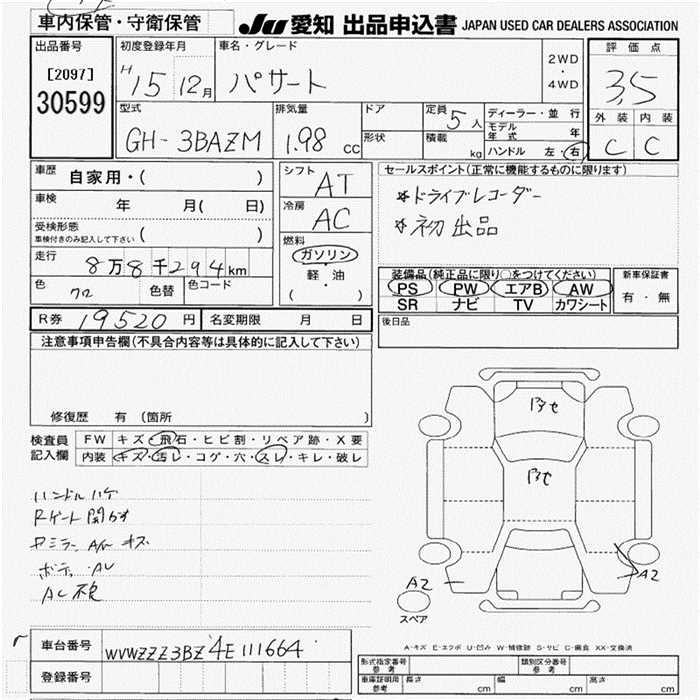 車内保管・守衛保管
JU 愛知 出品申込書 JAPAN USED CAR DEALERS ASSOCIATION
出品番号
[2097]
30599
初度登録年月
H15 12月
車名・グレード
パサート
2WD
・
4WD
評価点
3.5
外装 内装
C C
型式
GH-3BAZM
排気量
1.98 cc
ドア
形状
定員 5人
積載 kg
ディーラー・並行
モデル年式 年
ハンドル 左・右
車歴 自家用・( )
車検 年 月( 日)
受検形態
車検付きのみ記入して下さい ( )
走行 8万8千294km
色 クロ 色替 色コード
シフト AT
冷房 AC
燃料
ガソリン
・
軽・油
( )
セールスポイント(正常に機能するものに限ります)
*ドライブレコーダー
*初出品
装備品(純正品に限り○をつけてください)
PS PW エアB AW
SR ナビ TV カワシート
新車保証書
有・無
R券 19520円 名変期限 月 日
後日品
注意事項申告欄(不具合内容等は具体的に記入して下さい)
修復歴 有(箇所 )
検査員
記入欄
FW キズ・飛石・ヒビ割・リペア跡・X要
内装 キズ・汚レ・コゲ・穴・スレ・キレ・破レ
ハンドルハゲ
Rゲート開かず
キズ
AC不良
A2
A2
スペア
A-キズ E-エクボ U-凹み W-補修跡 S-サビ C-腐食 XX-交換済
車台番号 WVWZZZ3BZ4E111664
登録番号
型式指定番号
参考
類別区分番号
参考
車庫証明用
参考
長さ cm 幅 cm 高さ cm